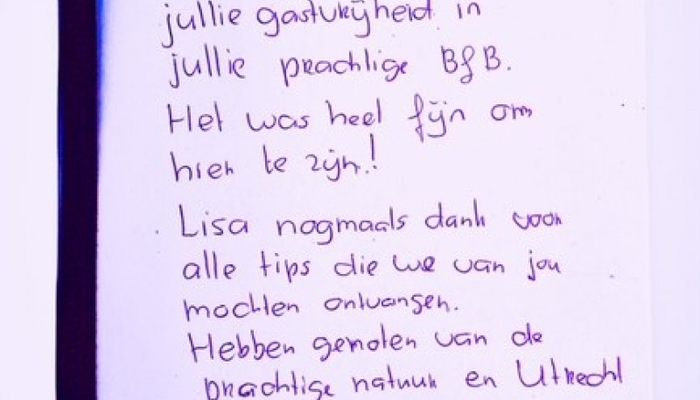 jullie gastvrijheid in
jullie prachtige B&B.
Het was heel fijn om
hier te zijn!
Lisa nogmaals dank voor
alle tips die we van jou
mochten ontvangen.
Hebben genoten van de
prachtige natuur en Utrecht